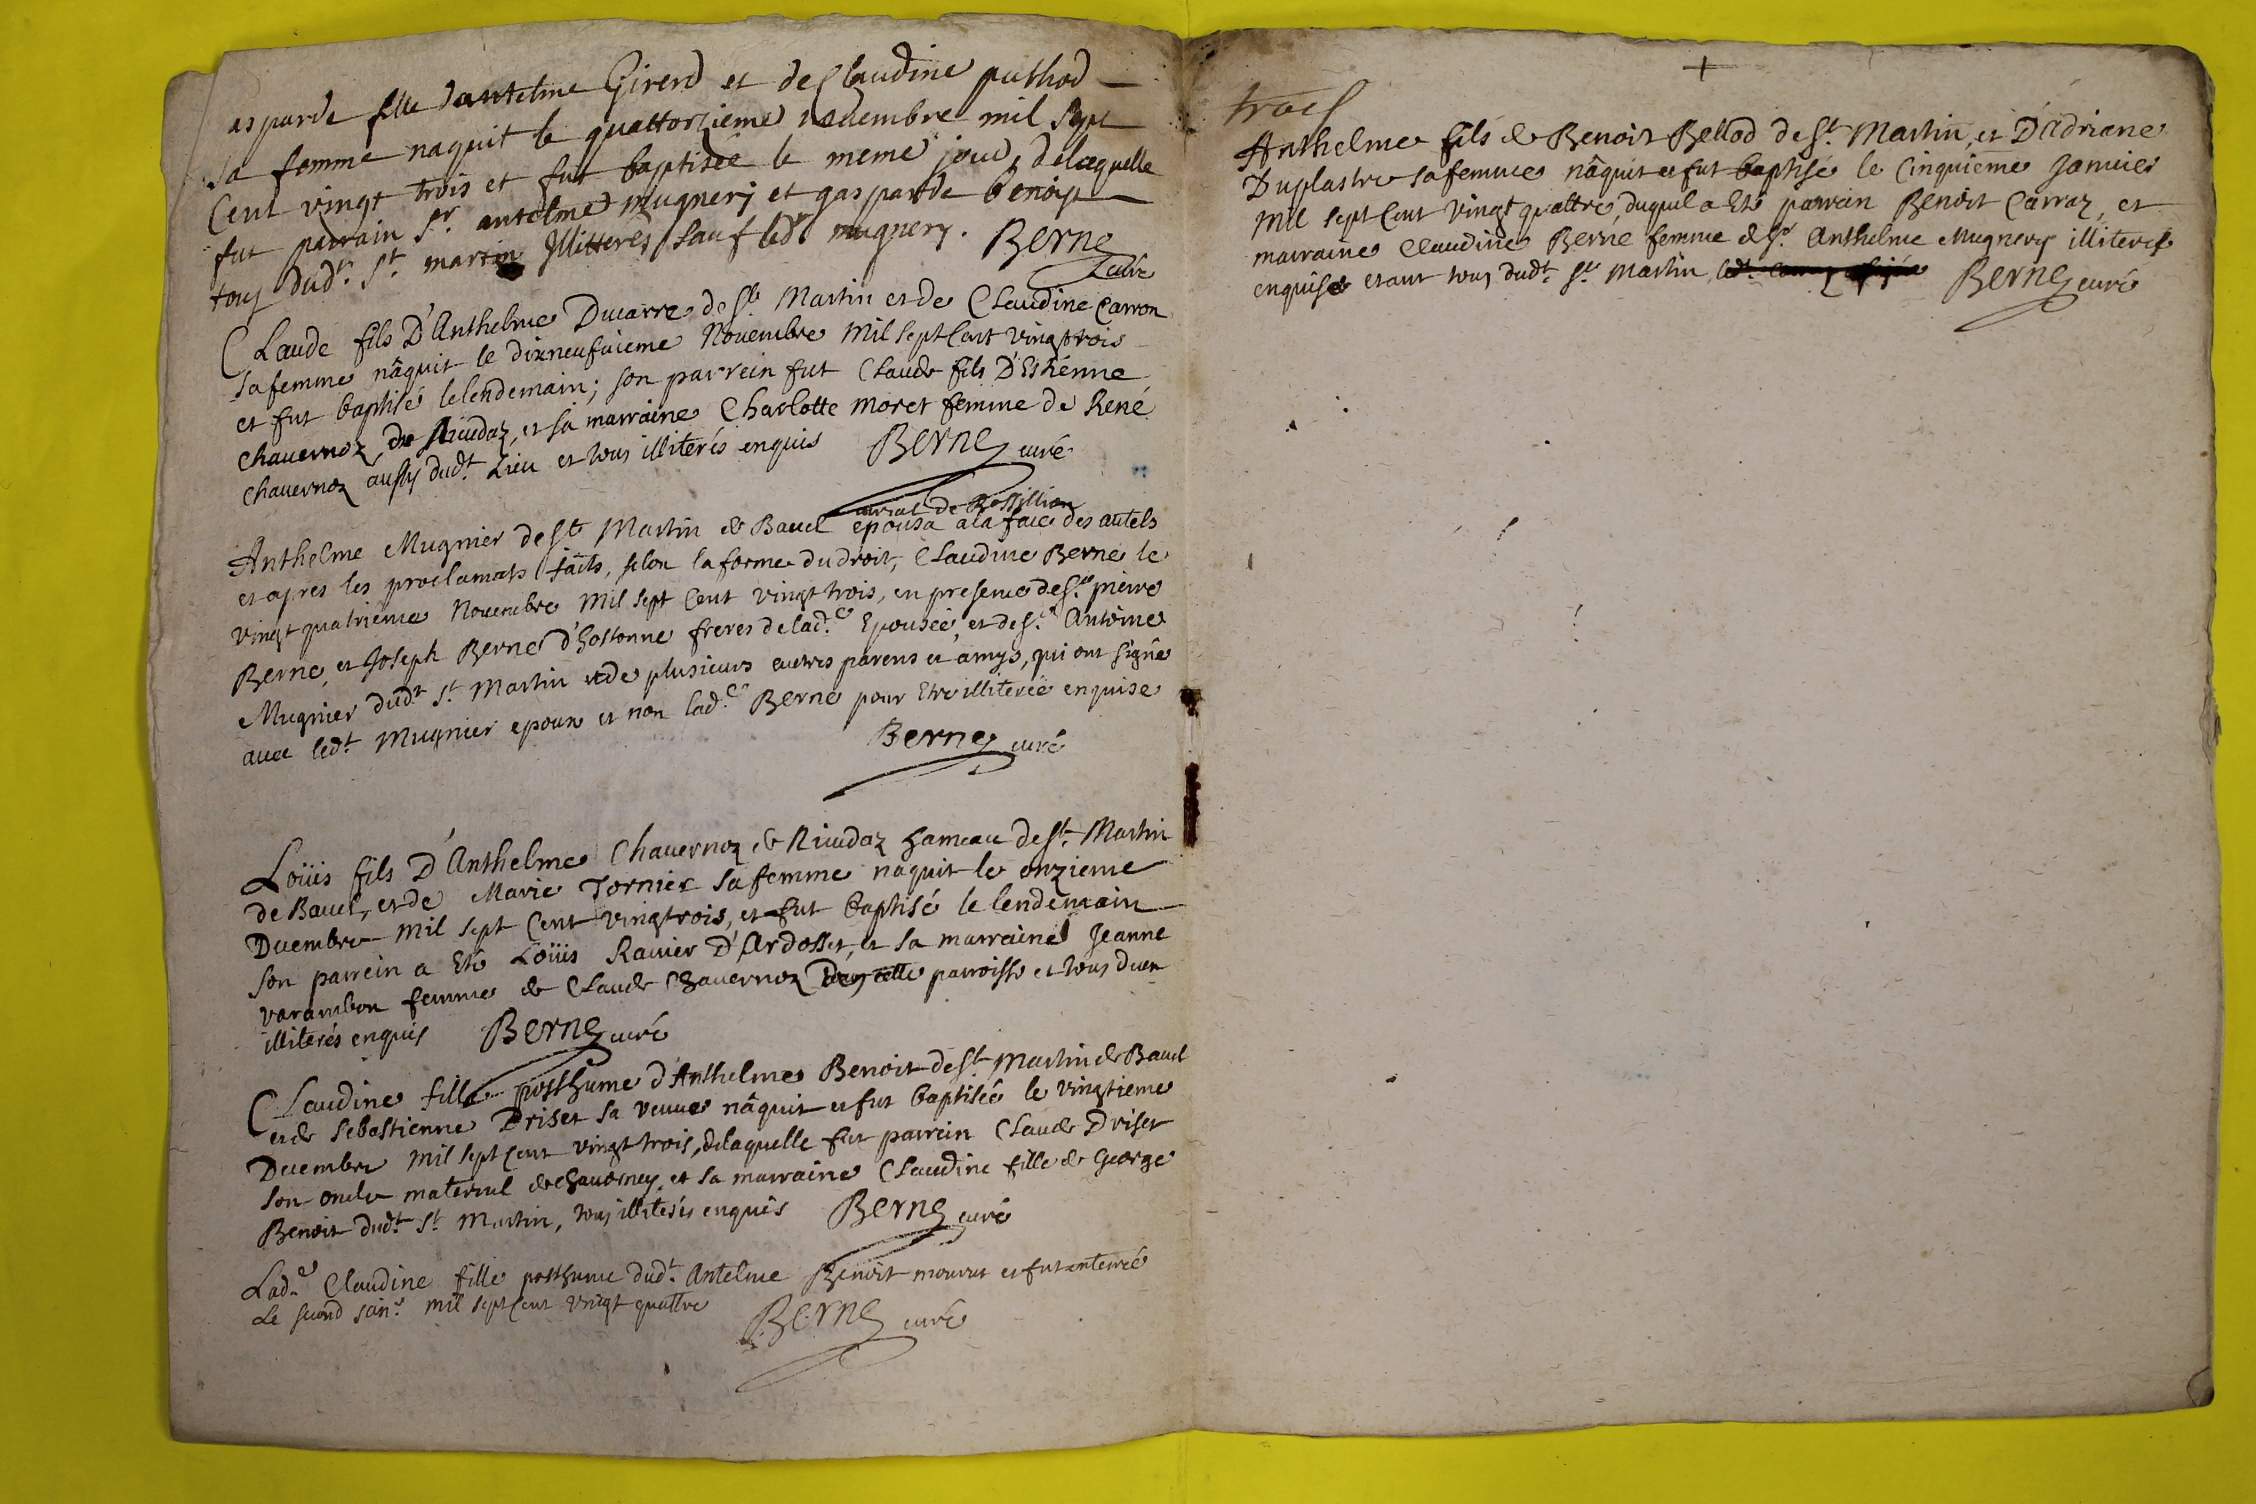 asparde fille dantelme Girerd et de Claudine puthod
sa femme naquit le quattorzieme novembre mil sept
Cent vingt trois et fut baptisée le meme jour, delaequelle
fut parrain Sr. antelme mugnery et gasparde benoist
tous dudt. St. martin Jllitteres sauf ledt. mugnery. Berne
curé
Claude fils D'Anthelme Ducarre de St. Martin et de Claudine Carron
sa femme nâquit le dixneufuieme Nouembre Mil sept Cent vingtrois
et fut baptisé lelendemain; son parrein fut Claude fils D'Estienne
Chauernoz, de Riudaz, et sa marraine Charlotte Moret femme de René
Chauernoz aussy dudt. Lieu et tous illiterés enquis Berne curé
curial de Rossillion
Anthelme Mugnier de St. Martin de Bauel epousa a la face des autels
et apres les proclamats faits, selon la forme du droit, Claudine Berne le
vingt quatrieme Nouembre Mil sept Cent vingt trois, en presence de Sr. pierre
Berne, et Joseph Berne d'hostonne freres de lad.e Epousée, et de Sr. Antoine
Mugnier dudt. St. Martin et de plusieurs autres parens et amys, qui ont signé
auec ledt. Mugnier epoux et non lad.e Berne pour Etre illiterée enquise
Berne curé
Loüis fils D'Anthelme Chauernoz de Riudaz hameau de St. Martin
de Bauel, et de Marie Tornier sa femme naquit le onzieme
Decembre mil sept Cent vingtrois, et fut baptisé le lendemain
son parrein a Eté Loüis Rauier D'Ardosset, et sa marraine Jeanne
varambon femme de Claude Chauernoz parroisse et tous deux
illiterés enquis Berne curé
Claudine fille posthume d'Anthelme Benoit de St. Martin de Bauel
et de Sebastienne Driset sa veuue nâquit et fut baptisée le vingtieme
Decembre mil sept cent vingt trois, delaquelle fut parrein Claude Driset
son oncle maternel de chauorney, et sa marraine Claudine fille de George
Benoit dudt. St. Martin, tous illiterés enquis Berne curé
Lad.e Claudine fille posthume dudt. Antelme Benoit mourut et fut enterrée
Le second jan.r mil sept Cent vingt quattre Berne curé
trois
Anthelme fils de Benoit Bellod de St. Martin, et D'Adriane
Duplastre sa femme nâquit et fut baptisé le Cinquieme Januier
Mil sept Cent vingt quattre, duquel a Eté parrain Benoit Carraz, et
marraine Claudine Berne femme de Sr. Anthelme Mugnery illiterés
enquise etant tous dudt. St. Martin Berne curé